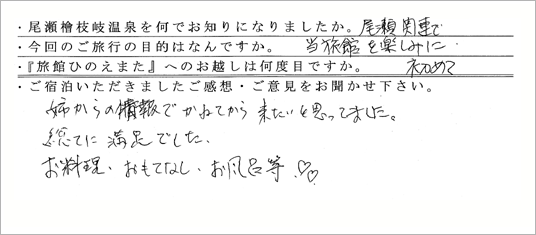 ・尾瀬檜枝岐温泉を何でお知りになりましたか。尾瀬関連で
・今回のご旅行の目的はなんですか。 当旅館を楽しみに
・『旅館ひのえまた』へのお越しは何度目ですか。 初めて
・ご宿泊いただきましたご感想・ご意見をお聞かせ下さい。
姉からの情報でかねてから来たいと思ってました。
総てに満足でした。
お料理、おもてなし、お風呂等♡♡